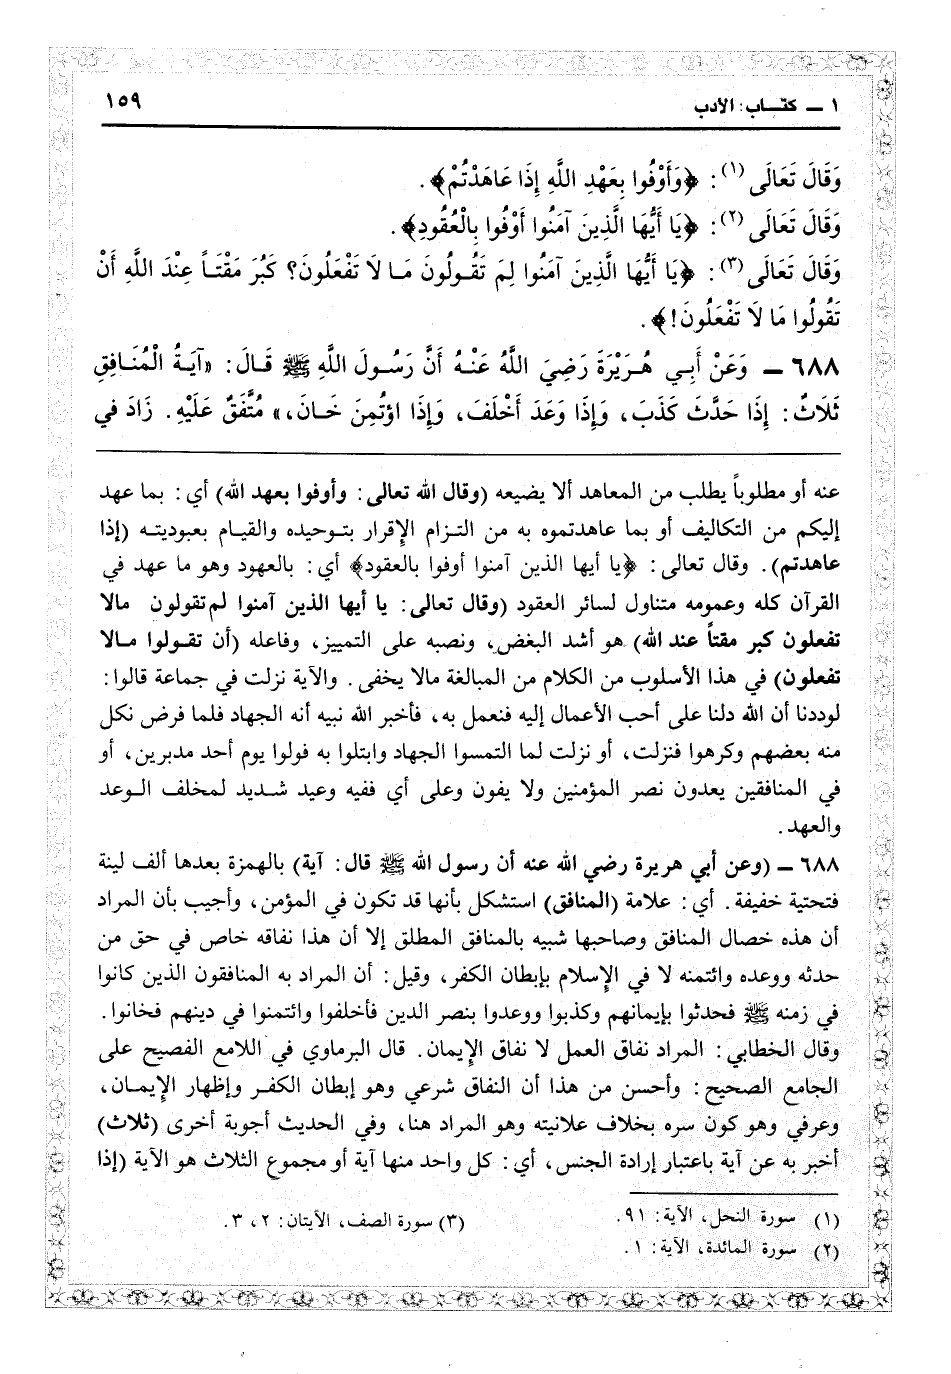 ١ ــ كتاب: الأدب ١٥٩
وَقَالَ تَعَالَى (١): ﴿وَأَوْفُوا بِعَهْدِ اللَّهِ إِذَا عَاهَدْتُمْ﴾.
وَقَالَ تَعَالَى (٢): ﴿يَا أَيُّهَا الَّذِينَ آمَنُوا أَوْفُوا بِالْعُقُودِ﴾.
وَقَالَ تَعَالَى (٣): ﴿يَا أَيُّهَا الَّذِينَ آمَنُوا لِمَ تَقُولُونَ مَا لَا تَفْعَلُونَ؟ كَبُرَ مَقْتَاً عِنْدَ اللَّهِ أَنْ
تَقُولُوا مَا لَا تَفْعَلُونَ!﴾.
٦٨٨ ــ وَعَنْ أَبِي هُرَيْرَةَ رَضِيَ اللَّهُ عَنْهُ أَنَّ رَسُولَ اللَّهِ ﷺ قَالَ: «آيَةُ الْمُنَافِقِ
ثَلَاثٌ: إِذَا حَدَّثَ كَذَبَ، وَإِذَا وَعَدَ أَخْلَفَ، وَإِذَا اؤْتُمِنَ خَانَ،» مُتَّفَقٌ عَلَيْهِ. زَادَ في
عنه أو مطلوباً يطلب من المعاهد ألا يضيعه (وقال الله تعالى: وأوفوا بعهد الله) أي: بما عهد
إليكم من التكاليف أو بما عاهدتموه به من التزام الإقرار بتوحيده والقيام بعبوديته (إذا
عاهدتم). وقال تعالى: ﴿يا أيها الذين آمنوا أوفوا بالعقود﴾ أي: بالعهود وهو ما عهد في
القرآن كله وعمومه متناول لسائر العقود (وقال تعالى: يا أيها الذين آمنوا لم تقولون مالا
تفعلون كبر مقتاً عند الله) هو أشد البغض، ونصبه على التمييز، وفاعله (أن تقولوا مالا
تفعلون) في هذا الأسلوب من الكلام من المبالغة مالا يخفى. والآية نزلت في جماعة قالوا:
لوددنا أن الله دلنا على أحب الأعمال إليه فنعمل به، فأخبر الله نبيه أنه الجهاد فلما فرض نكل
منه بعضهم وكرهوا فنزلت، أو نزلت لما التمسوا الجهاد وابتلوا به فولوا يوم أحد مدبرين، أو
في المنافقين يعدون نصر المؤمنين ولا يفون وعلى أي ففيه وعيد شديد لمخلف الوعد
والعهد.
٦٨٨ ــ (وعن أبي هريرة رضي الله عنه أن رسول الله ﷺ قال: آية) بالهمزة بعدها ألف لينة
فتحتية خفيفة. أي: علامة (المنافق) استشكل بأنها قد تكون في المؤمن، وأجيب بأن المراد
أن هذه خصال المنافق وصاحبها شبيه بالمنافق المطلق إلا أن هذا نفاقه خاص في حق من
حدثه ووعده وائتمنه لا في الإسلام بإبطان الكفر، وقيل: أن المراد به المنافقون الذين كانوا
في زمنه ﷺ فحدثوا بإيمانهم وكذبوا ووعدوا بنصر الدين فأخلفوا وائتمنوا في دينهم فخانوا.
وقال الخطابي: المراد نفاق العمل لا نفاق الإيمان. قال البرماوي في اللامع الفصيح على
الجامع الصحيح: وأحسن من هذا أن النفاق شرعي وهو إبطان الكفر وإظهار الإيمان،
وعرفي وهو كون سره بخلاف علانيته وهو المراد هنا، وفي الحديث أجوبة أخرى (ثلاث)
أخبر به عن آية باعتبار إرادة الجنس، أي: كل واحد منها آية أو مجموع الثلاث هو الآية (إذا
(١) سورة النحل، الآية: ٩١.
(٢) سورة المائدة، الآية: ١.
(٣) سورة الصف، الآيتان: ٢، ٣.